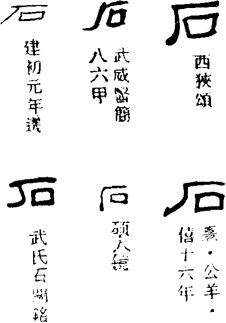 石
建初元年
石
武威醫簡
八六甲
石
西狹頌
石
武氏石闕銘
石
碩人鏡
石
熹·公羊·
僖十六年